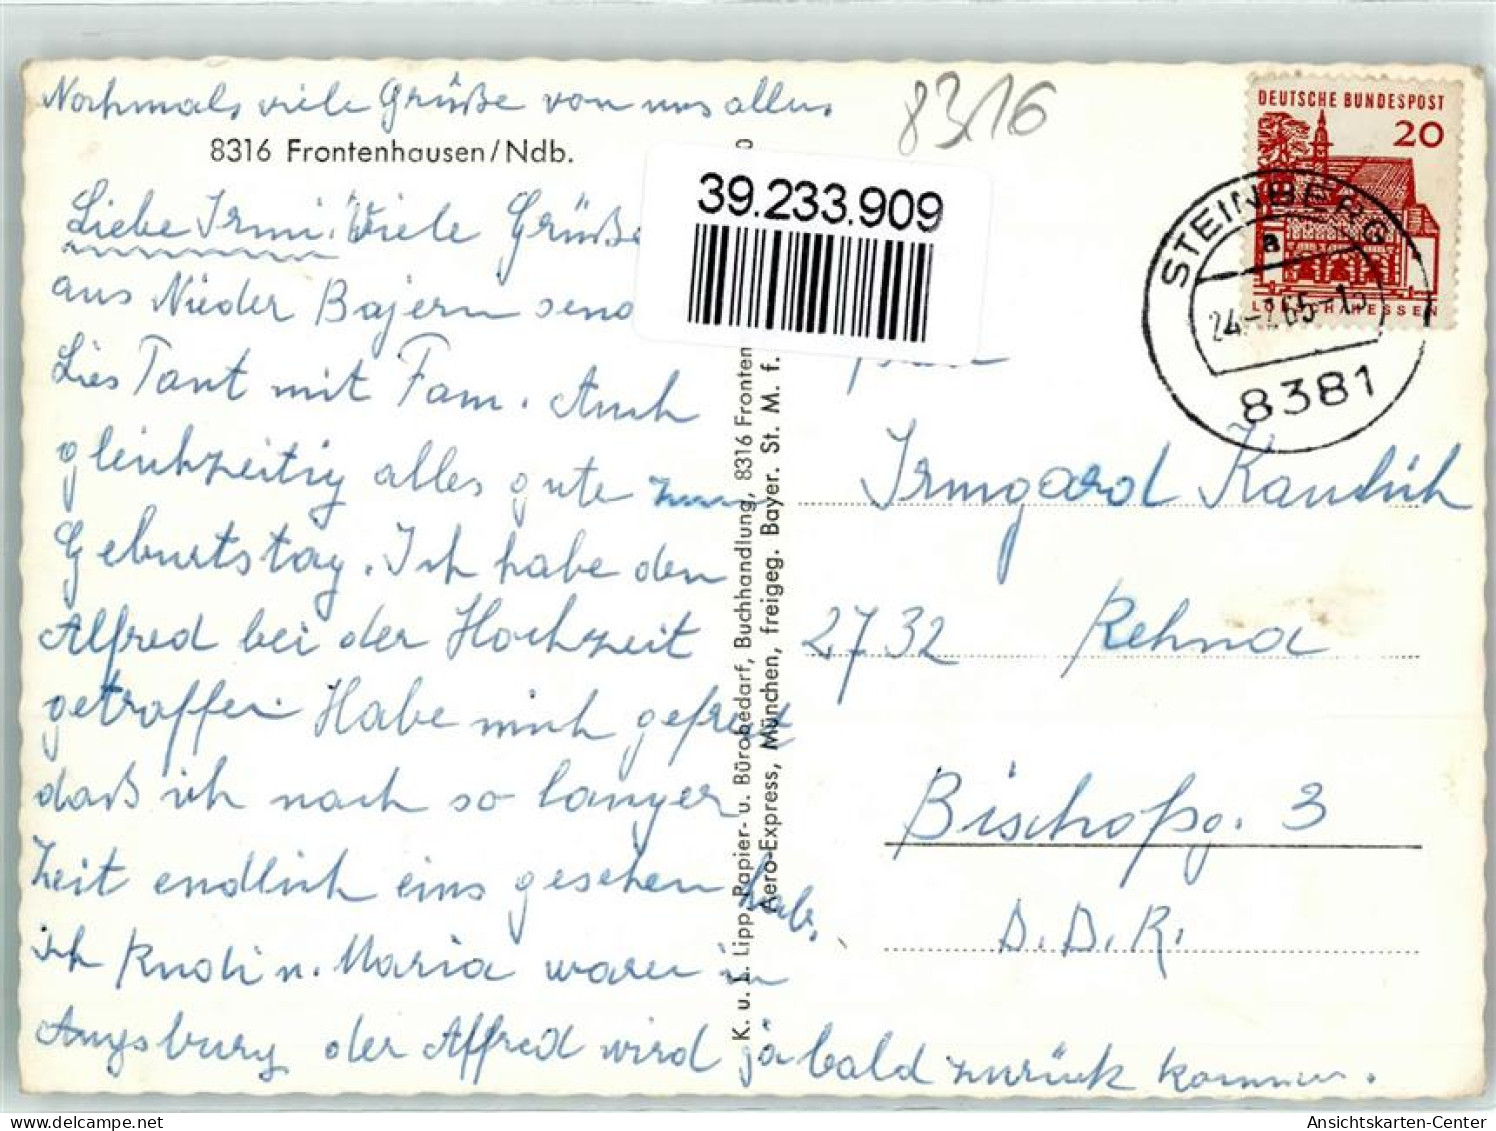 Nochmals viele Grüße von uns allen
8316 Frontenhausen/Ndb.
Liebe Irmi. Viele Grüße
aus Nieder Bajern send
Lies Tant mit Fam. Auch
gleichzeitig alles gute zum
Geburtstag. Ich habe den
Alfred bei der Hochzeit
getroffen Habe mich gefreut
daß ich nach so langer
Zeit endlich eins gesehen hab.
ich Rudi u. Maria waren in
Augsburg der Alfred wird ja bald zurück kommen.
K. u. L. Lipp, Papier- u. Bürobedarf, Buchhandlung, 8316 Fronten
Aero-Express, München, freigeg. Bayer. St. M. f.
8316
39.233.909
DEUTSCHE BUNDESPOST
20
LORSCH HESSEN
STEINBERG
a
24.-65-15
8381
Irmgard
2732 Rehna
Bischofsg. 3
D.D.R.
Ansichtskarten-Center